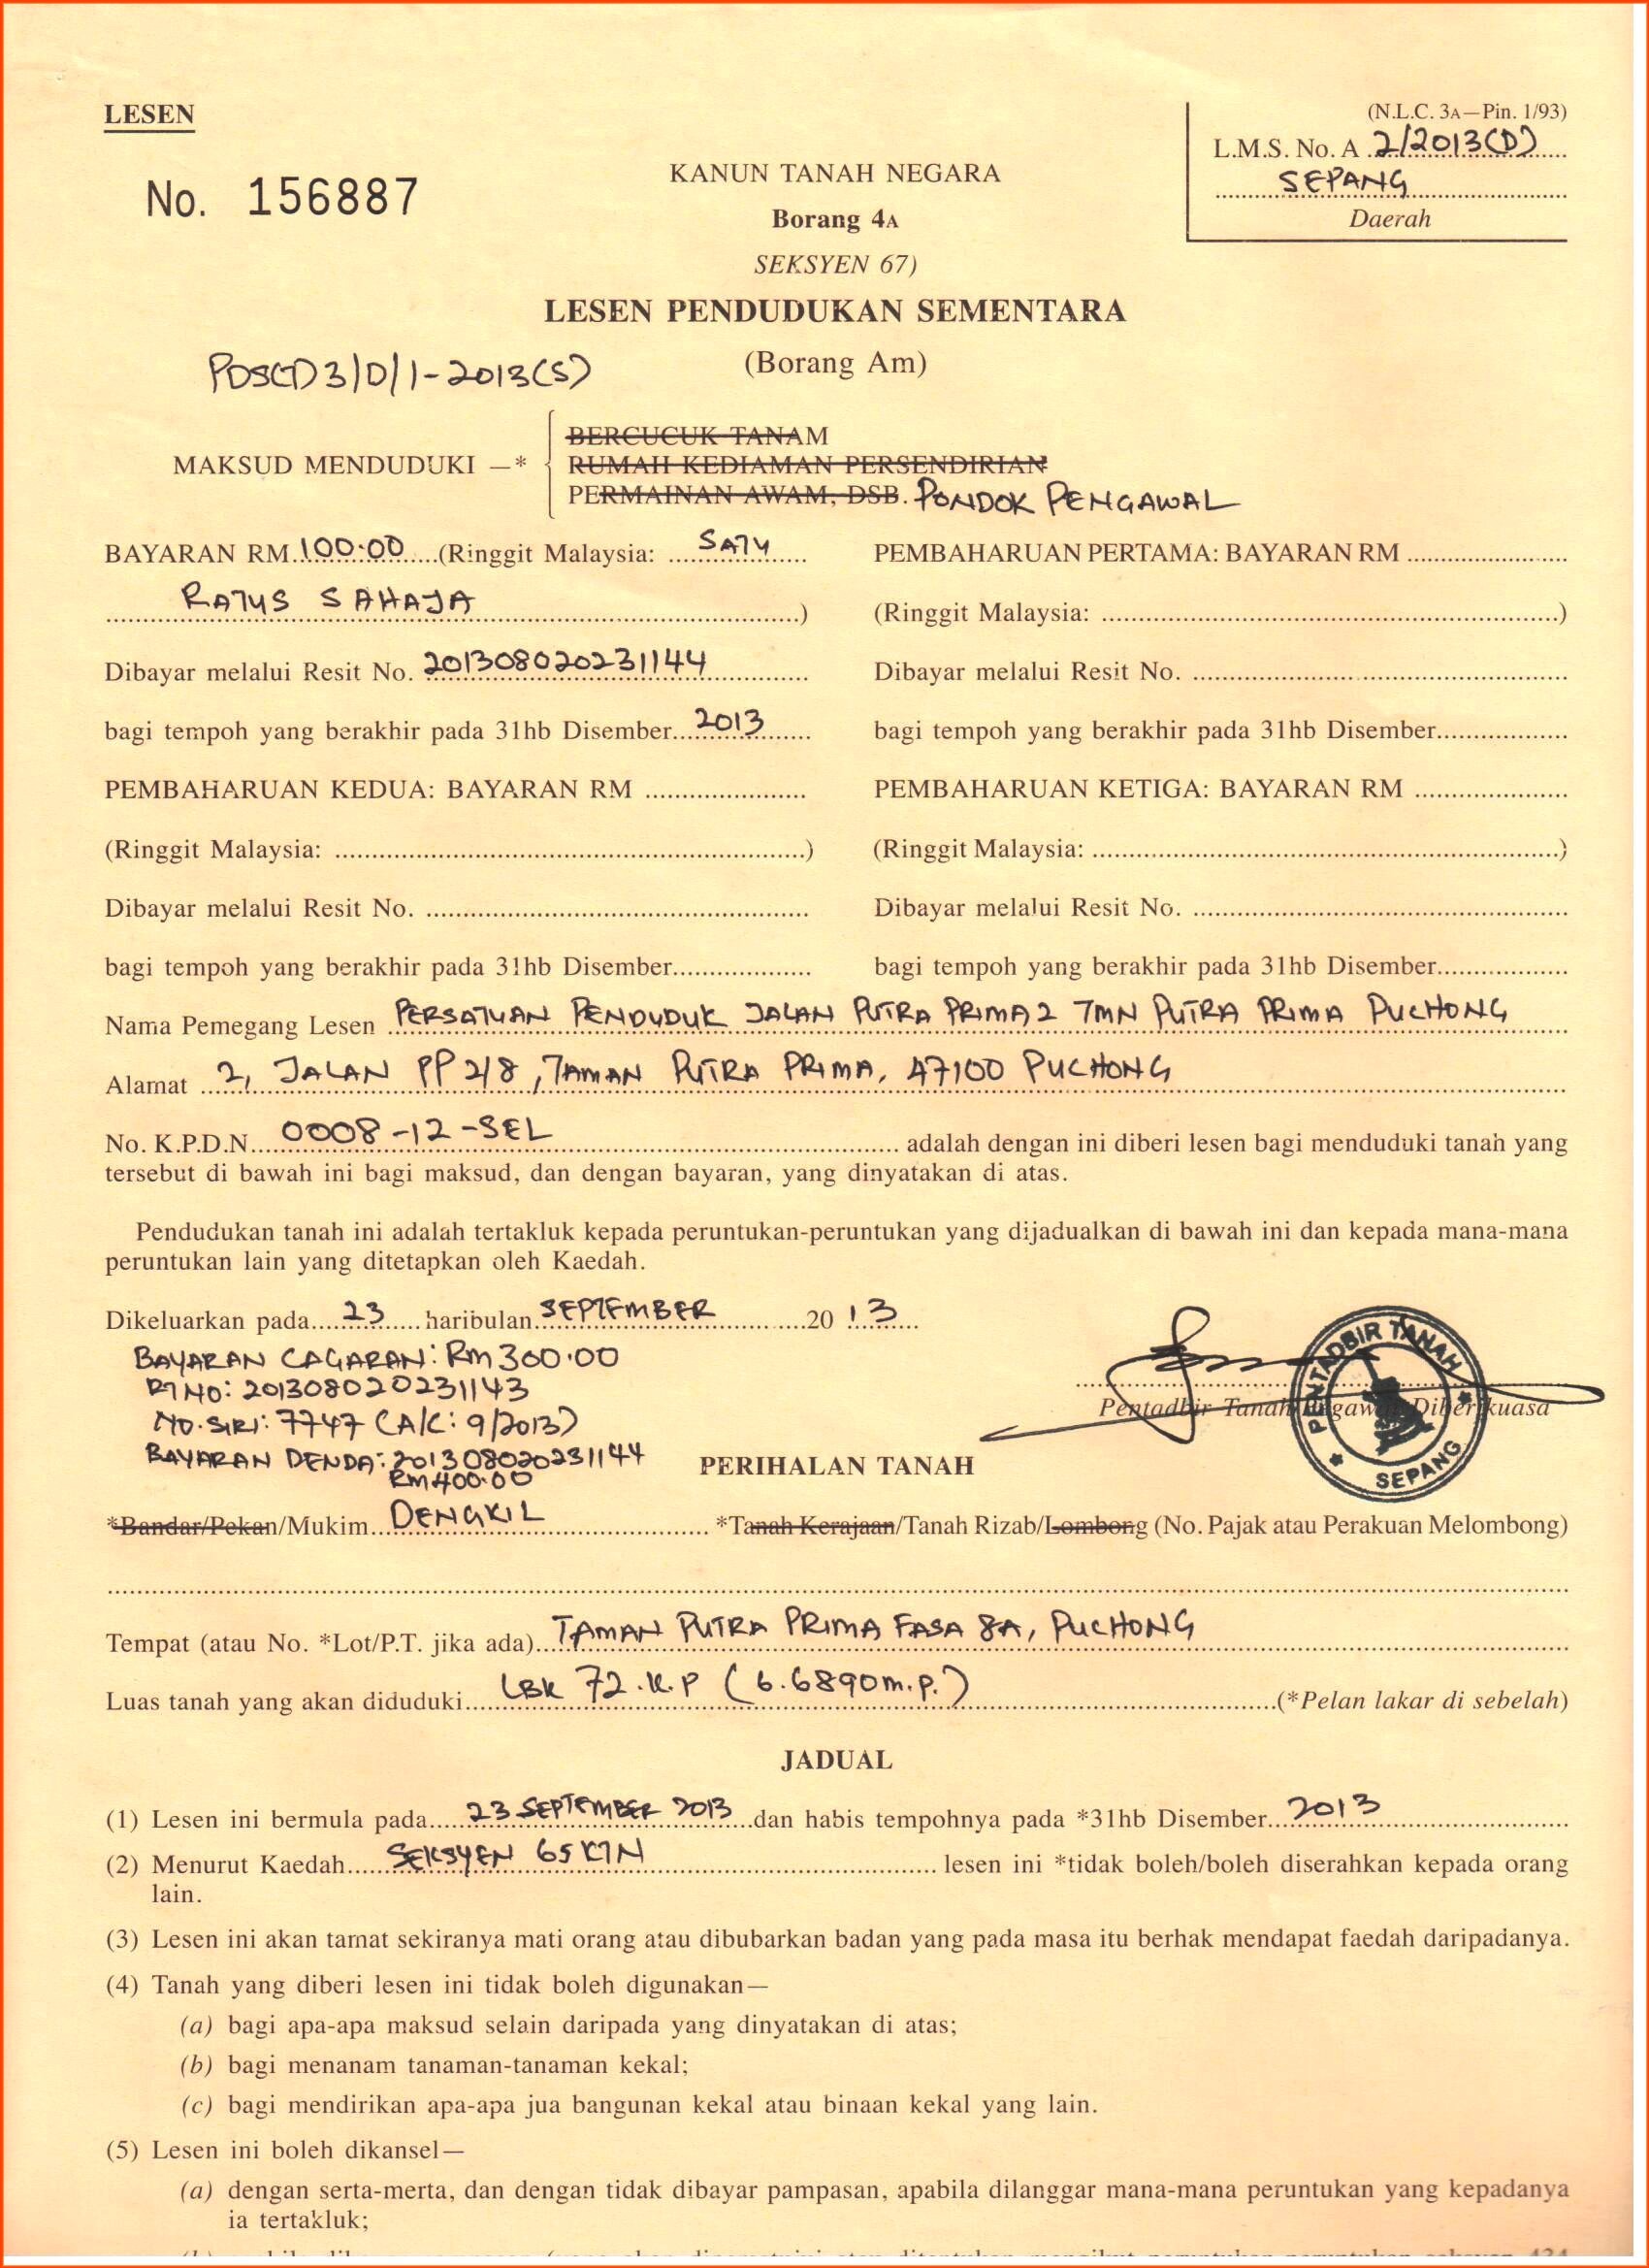 LESEN
(N.L.C. 3A—Pin. 1/93)
L.M.S. No. A 2/2013(D)
SEPANG
Daerah
No. 156887
KANUN TANAH NEGARA
Borang 4A
SEKSYEN 67)
LESEN PENDUDUKAN SEMENTARA
(Borang Am)
PDS(T)3/D/1-2013(S)
MAKSUD MENDUDUKI —*
BERCUCUK TANAM
RUMAH KEDIAMAN PERSENDIRIAN
PERMAINAN AWAM, DSB. PONDOK PENGAWAL
BAYARAN RM 100.00 (Ringgit Malaysia: SATU
RATUS SAHAJA )
Dibayar melalui Resit No. 201308020231144
bagi tempoh yang berakhir pada 31hb Disember 2013
PEMBAHARUAN PERTAMA: BAYARAN RM
(Ringgit Malaysia: )
Dibayar melalui Resit No.
bagi tempoh yang berakhir pada 31hb Disember
PEMBAHARUAN KEDUA: BAYARAN RM
(Ringgit Malaysia: )
Dibayar melalui Resit No.
bagi tempoh yang berakhir pada 31hb Disember
PEMBAHARUAN KETIGA: BAYARAN RM
(Ringgit Malaysia: )
Dibayar melalui Resit No.
bagi tempoh yang berakhir pada 31hb Disember
Nama Pemegang Lesen PERSATUAN PENDUDUK JALAN PUTRA PRIMA 2 TMN PUTRA PRIMA PUCHONG
Alamat 2, JALAN PP 2/8, TAMAN PUTRA PRIMA, 47100 PUCHONG
No. K.P.D.N. 0008-12-SEL adalah dengan ini diberi lesen bagi menduduki tanah yang
tersebut di bawah ini bagi maksud, dan dengan bayaran, yang dinyatakan di atas.
Pendudukan tanah ini adalah tertakluk kepada peruntukan-peruntukan yang dijadualkan di bawah ini dan kepada mana-mana
peruntukan lain yang ditetapkan oleh Kaedah.
Dikeluarkan pada 23 haribulan SEPTEMBER 20 13
BAYARAN CAGARAN: RM 300.00
RT NO: 201308020231143
NO. SIRI: 7747 (A/C: 9/2013)
BAYARAN DENDA: 201308020231144
RM400.00
Pentadbir Tanah/Pegawai Diberikuasa
PENTADBIR TANAH
SEPANG
PERIHALAN TANAH
*Bandar/Pekan/Mukim DENGKIL *Tanah Kerajaan/Tanah Rizab/Lombong (No. Pajak atau Perakuan Melombong)
Tempat (atau No. *Lot/P.T. jika ada) TAMAN PUTRA PRIMA FASA 8A, PUCHONG
Luas tanah yang akan diduduki LBK 72.K.P (6.6890m.p.) (*Pelan lakar di sebelah)
JADUAL
(1) Lesen ini bermula pada 23 SEPTEMBER 2013 dan habis tempohnya pada *31hb Disember 2013
(2) Menurut Kaedah SEKSYEN 65 KTN lesen ini *tidak boleh/boleh diserahkan kepada orang
lain.
(3) Lesen ini akan tamat sekiranya mati orang atau dibubarkan badan yang pada masa itu berhak mendapat faedah daripadanya.
(4) Tanah yang diberi lesen ini tidak boleh digunakan—
(a) bagi apa-apa maksud selain daripada yang dinyatakan di atas;
(b) bagi menanam tanaman-tanaman kekal;
(c) bagi mendirikan apa-apa jua bangunan kekal atau binaan kekal yang lain.
(5) Lesen ini boleh dikansel—
(a) dengan serta-merta, dan dengan tidak dibayar pampasan, apabila dilanggar mana-mana peruntukan yang kepadanya
ia tertakluk;